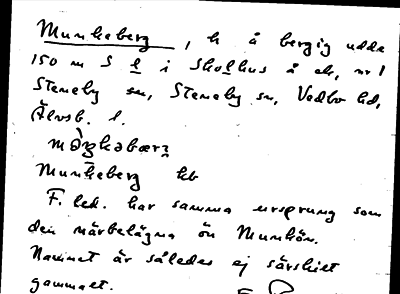 Munkeberg, h å bergig udde
150 m S l i Skolhus å ek, nr 1
Steneby sn, Steneby sn, Vedbo hd,
Älvsb. l.
Munkeberg hb
F. led. har samma ursprung som
den närbelägna ön Munkön.
Namnet är således ej särskilt
gammalt.